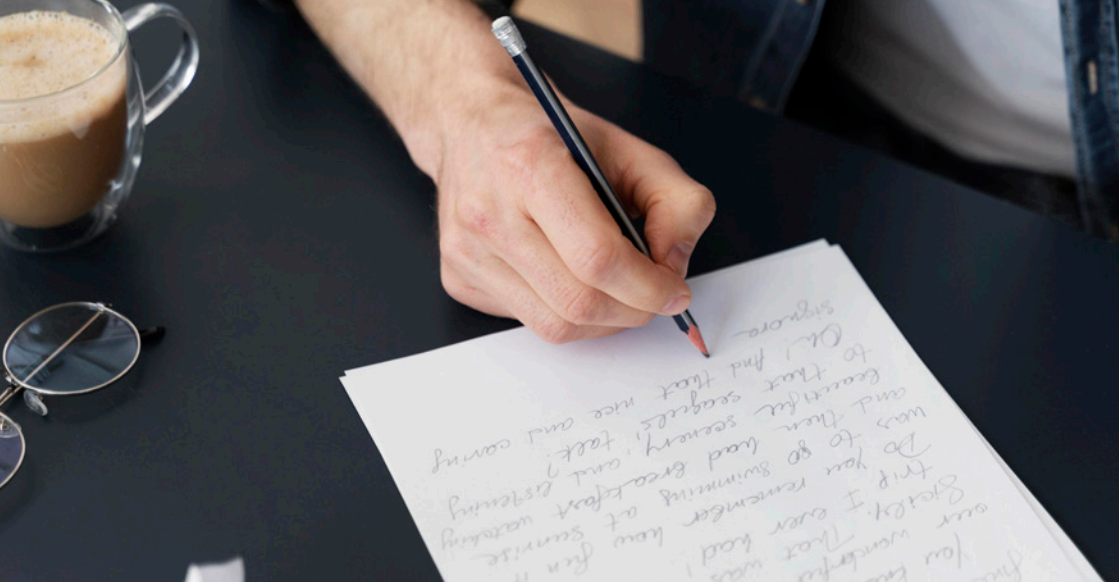 you
our wonderful
Sicily. That was
trip I ever had!
Do you remember how fun it
was to go swimming at sunrise
and then had breakfast watching
beautiful scenery, and listening
to that seagulls talk?
Oh! And that nice and caring
signora